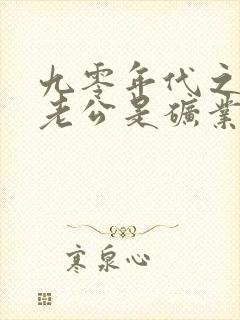 九零年代之
老公是矿业
寒泉心